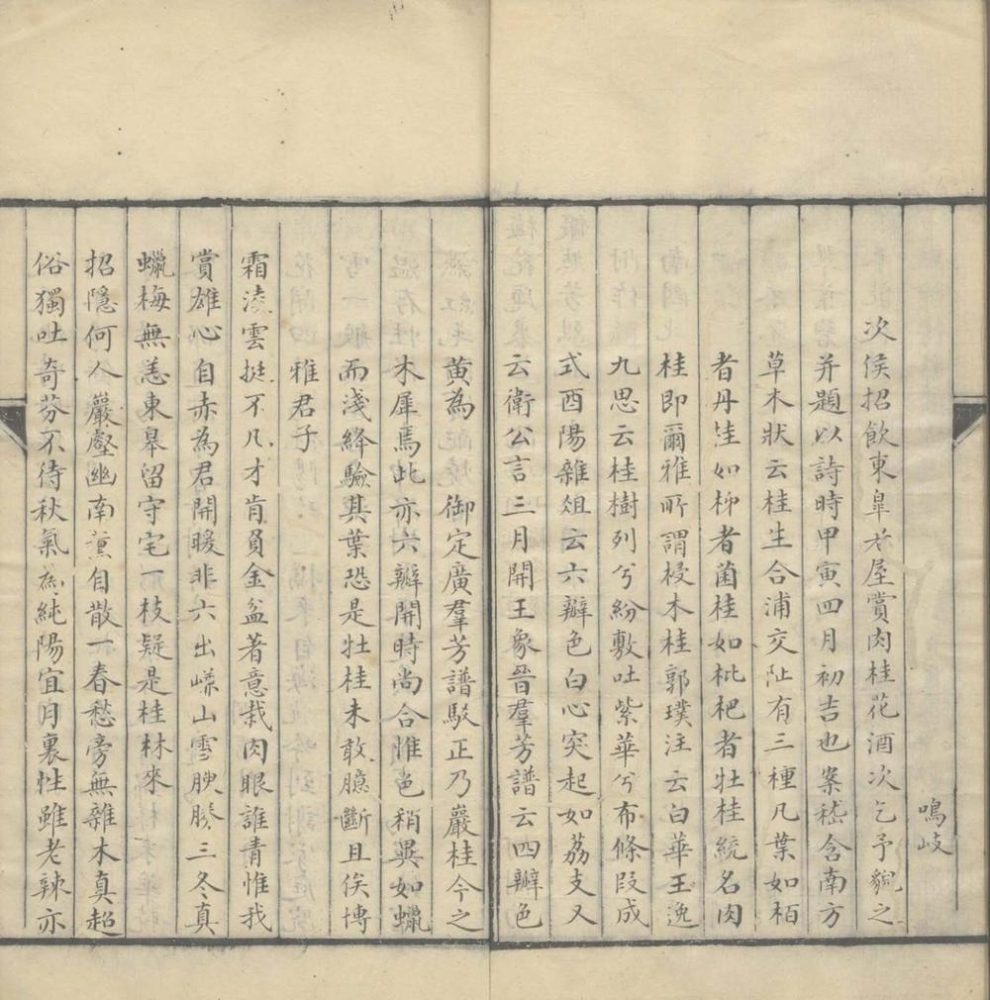 鳴岐
次侯招飲東皐老屋賞肉桂花酒次乞予貌之
并題以詩時甲寅四月初吉也案嵇含南方
草木狀云桂生合浦交阯有三種凡葉如栢
者丹桂如柳者菌桂如枇杷者牡桂統名肉
桂即爾雅所謂梫木桂郭璞注云白華王逸
九思云桂樹列兮紛敷吐紫華兮布條段成
式酉陽雜俎云六瓣色白心突起如荔支又
云衛公言三月開王象晉羣芳譜云四瓣色
黄為 御定廣羣芳譜駁正乃巖桂今之
木犀焉此亦六瓣開時尚合惟色稍異如蠟
而淺絳驗其葉恐是牡桂未敢臆斷且俟博
雅君子
霜凌雲挺不凡才肯負金盆著意栽肉眼誰青惟我
賞雄心自赤為君開暖非六出嵊山雪腴勝三冬真
蠟梅無恙東皋留守宅一枝疑是桂林來
招隱何人巖壑幽南薫自散一春愁旁無雜木真超
俗獨吐奇芬不待秋氣為純陽宜月裏性雖老辣亦